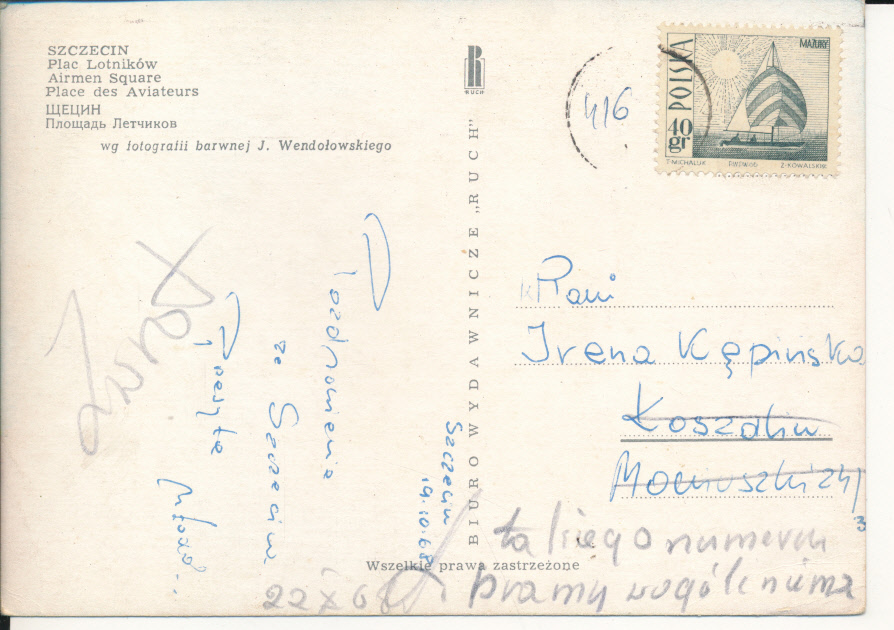 SZCZECIN
Plac Lotników
Airmen Square
Place des Aviateurs
ЩЕЦИН
Площадь Летчиков
wg fotografii barwnej J. Wendołowskiego
RUCH
416
MAZURY
POLSKA
40
gr
T. MICHALUK PWPW-60 Z. KOWALSKI
BIURO WYDAWNICZE „RUCH"
Szczecin
19.10.68
Pozdrowienia
ze Szczecina
Przesyła
Zwrot
Pani
Irena Kępińska
Koszalin
Moniuszki 24/
3
takiego numeru
bramy wogóle nima
22 X 68
Wszelkie prawa zastrzeżone